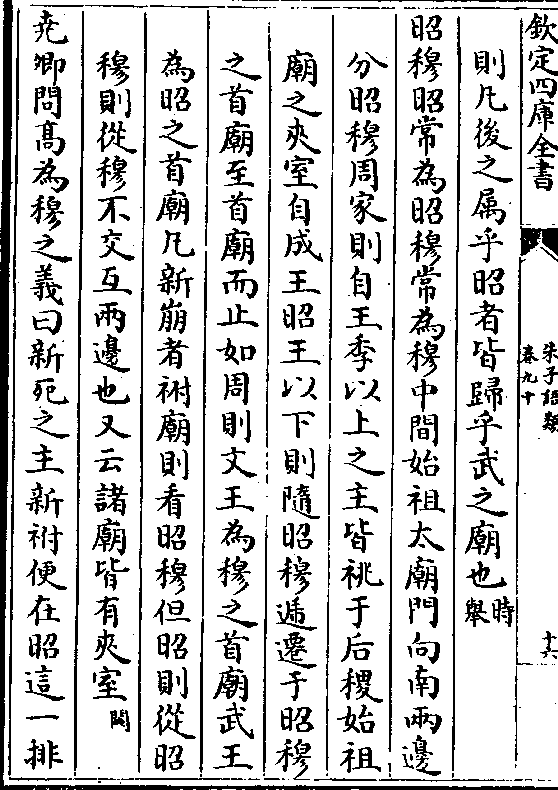 欽定四庫全書
朱子語類
卷九十
十六
則凡後之属乎昭者皆歸乎武之廟也時舉
昭穆昭常為昭穆常為穆中間始祖太廟門向南兩邊
分昭穆周家則自王季以上之主皆祧于后稷始祖
廟之夾室自成王昭王以下則隨昭穆遞遷于昭穆
之首廟至首廟而止如周則文王為穆之首廟武王
為昭之首廟凡新崩者祔廟則看昭穆但昭則從昭
穆則從穆不交互兩邊也又云諸廟皆有夾室閎
尭卿問髙為穆之義曰新死之主新祔便在昭這一排